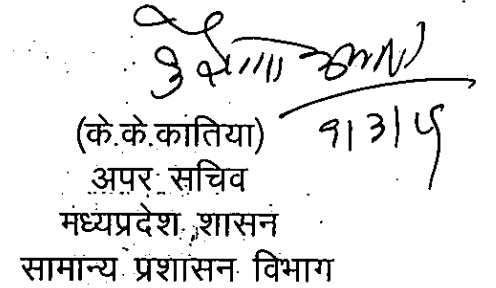 (के.के.कातिया)
अपर सचिव
मध्यप्रदेश शासन
सामान्य प्रशासन विभाग